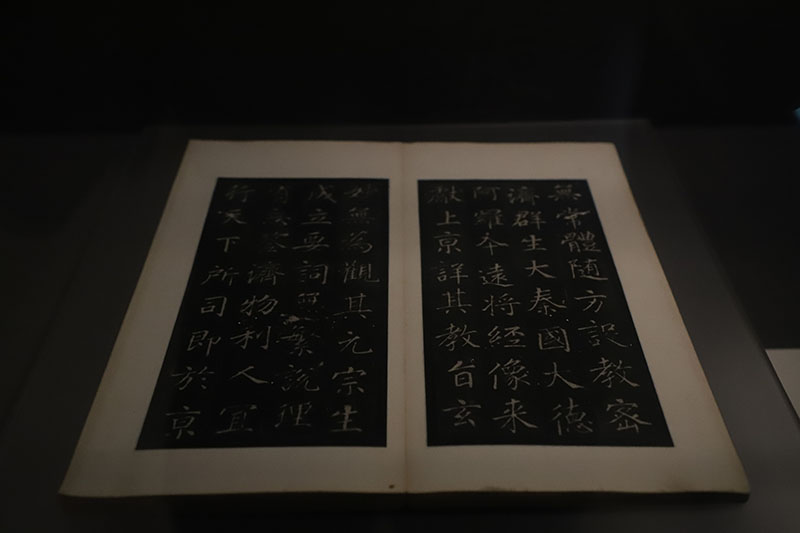 無常體隨方設教密
濟群生大秦國大德
阿羅夲遠將經像来
獻上京詳其教旨玄
妙無為觀其元宗生
成立要詞無繁說理
有忘筌濟物利人宜
行天下所司即於京